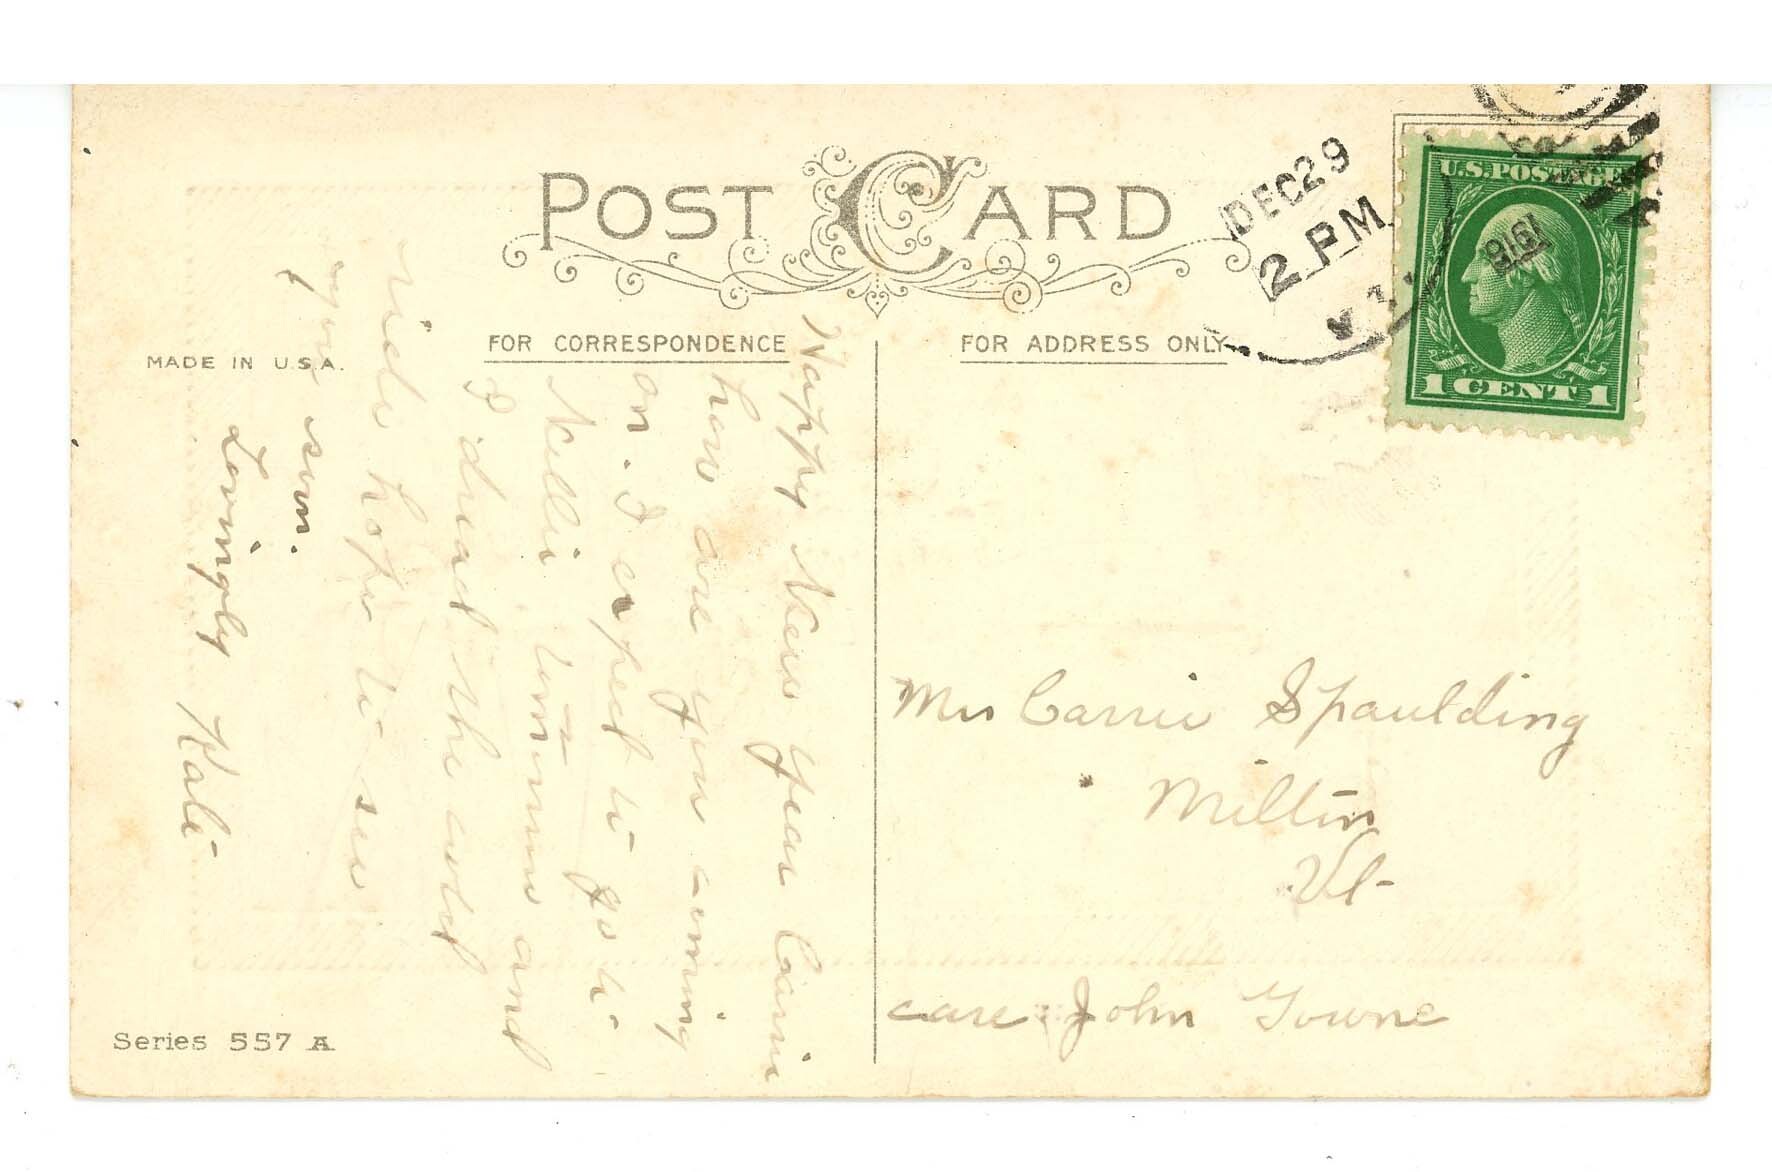 POST CARD
DEC 29
2 PM
1916
U.S. POSTAGE
1 CENT 1
FOR CORRESPONDENCE
FOR ADDRESS ONLY
MADE IN U.S.A.
Happy New Year Carrie
how are you coming
on. I expect to go to
Nellie and
I dread the cold
ride hope to see
you soon.
Lovingly Kate
Mrs Carrie Spaulding
Milton
Vt-
care John Towne
Series 557 A